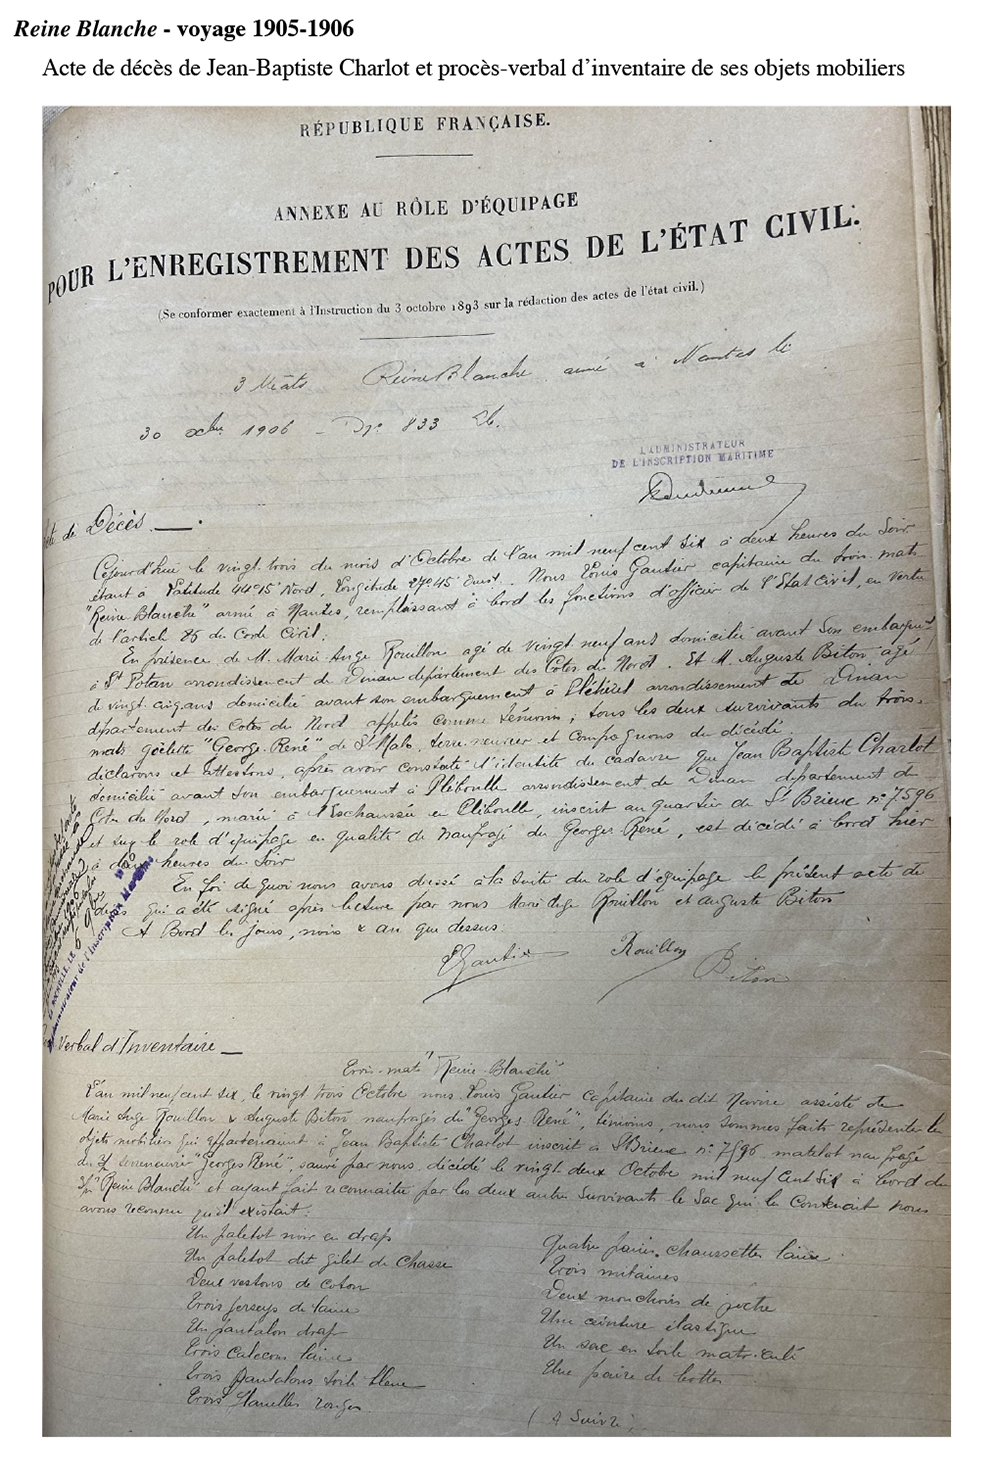 Reine Blanche - voyage 1905-1906
Acte de décès de Jean-Baptiste Charlot et procès-verbal d'inventaire de ses objets mobiliers
RÉPUBLIQUE FRANÇAISE.
ANNEXE AU RÔLE D'ÉQUIPAGE
POUR L'ENREGISTREMENT DES ACTES DE L'ÉTAT CIVIL.
(Se conformer exactement à l'Instruction du 3 octobre 1893 sur la rédaction des actes de l'état civil.)
3 Mâts Reine Blanche armé à Nantes le
30 1906 - 833
L'ADMINISTRATEUR
DE L'INSCRIPTION MARITIME
de Décès
Cejourd'hui le vingt trois du mois d'Octobre de l'an mil neuf cent six à deux heures du Soir
étant à Latitude 44°15 Nord, Longitude 27°45 Ouest. Nous Louis Gautier capitaine du trois-mats
"Reine Blanche" armé à Nantes, remplissant à bord les fonctions d'officier de l'Etat Civil, en vertu
de l'article 86 du Code Civil;
En présence de M. Marie Ange Rouillon agé de vingt neuf ans domicilié avant son embarqu
à St Potan arrondissement de Dinan département des Cotes du Nord. Et M. Auguste Biton agé
de vingt cinq ans domicilié avant son embarquement à Pléhérel arrondissement de Dinan
département des Cotes du Nord appelés comme témoins; tous les deux survivants du trois-
mats goëlette "George-René" de St Malo, terre-neuvier et compagnons du décédé
déclarons et attestons, après avoir constaté l'identité du cadavre que Jean Baptiste Charlot
domicilié avant son embarquement à Pléboulle arrondissement de Dinan département de
Cotes du Nord, marié à l'Eschaussée en Pléboulle, inscrit au quartier de St Brieuc n° 7596
et sur le role d'équipage en qualité de naufragé du Georges René, est décédé à bord hier
à deux heures du Soir
En foi de quoi nous avons dressé à la suite du role d'équipage le présent acte de
décès qui a été signé après lecture par nous Marie Ange Rouillon et Auguste Biton
A Bord les jours, mois & an que dessus.
LGautier Rouillon Biton
Verbal d'Inventaire
Trois-mats "Reine-Blanche"
L'an mil neuf cent six, le vingt trois Octobre nous Louis Gautier capitaine du dit Navire assisté de
Marie Ange Rouillon & Auguste Biton naufragés du "Georges René", témoins, nous sommes faits représenter les
objets mobiliers qui appartenaient à Jean Baptiste Charlot inscrit à St Brieuc n° 7596 matelot naufragé
du terreneuvier "Georges René", sauvé par nous, décédé le vingt deux Octobre mil neuf cent six à bord du
"Reine Blanche" et ayant fait reconnaitre par les deux autres survivants le Sac qui les contenait nous
avons reconnu qu'il existait:
Un paletot noir en drap
Un paletot dit gilet de chasse
Deux vestons de coton
Trois jerseys de laine
Un pantalon drap
Trois calecons laine
Trois pantalons toile bleue
Trois flanelles rouges
Quatre paires chaussettes laine
Trois mitaines
Deux mouchoirs de poche
Une ceinture élastique
Un sac en toile matriculé
Une paire de bottes
(A Suivre)